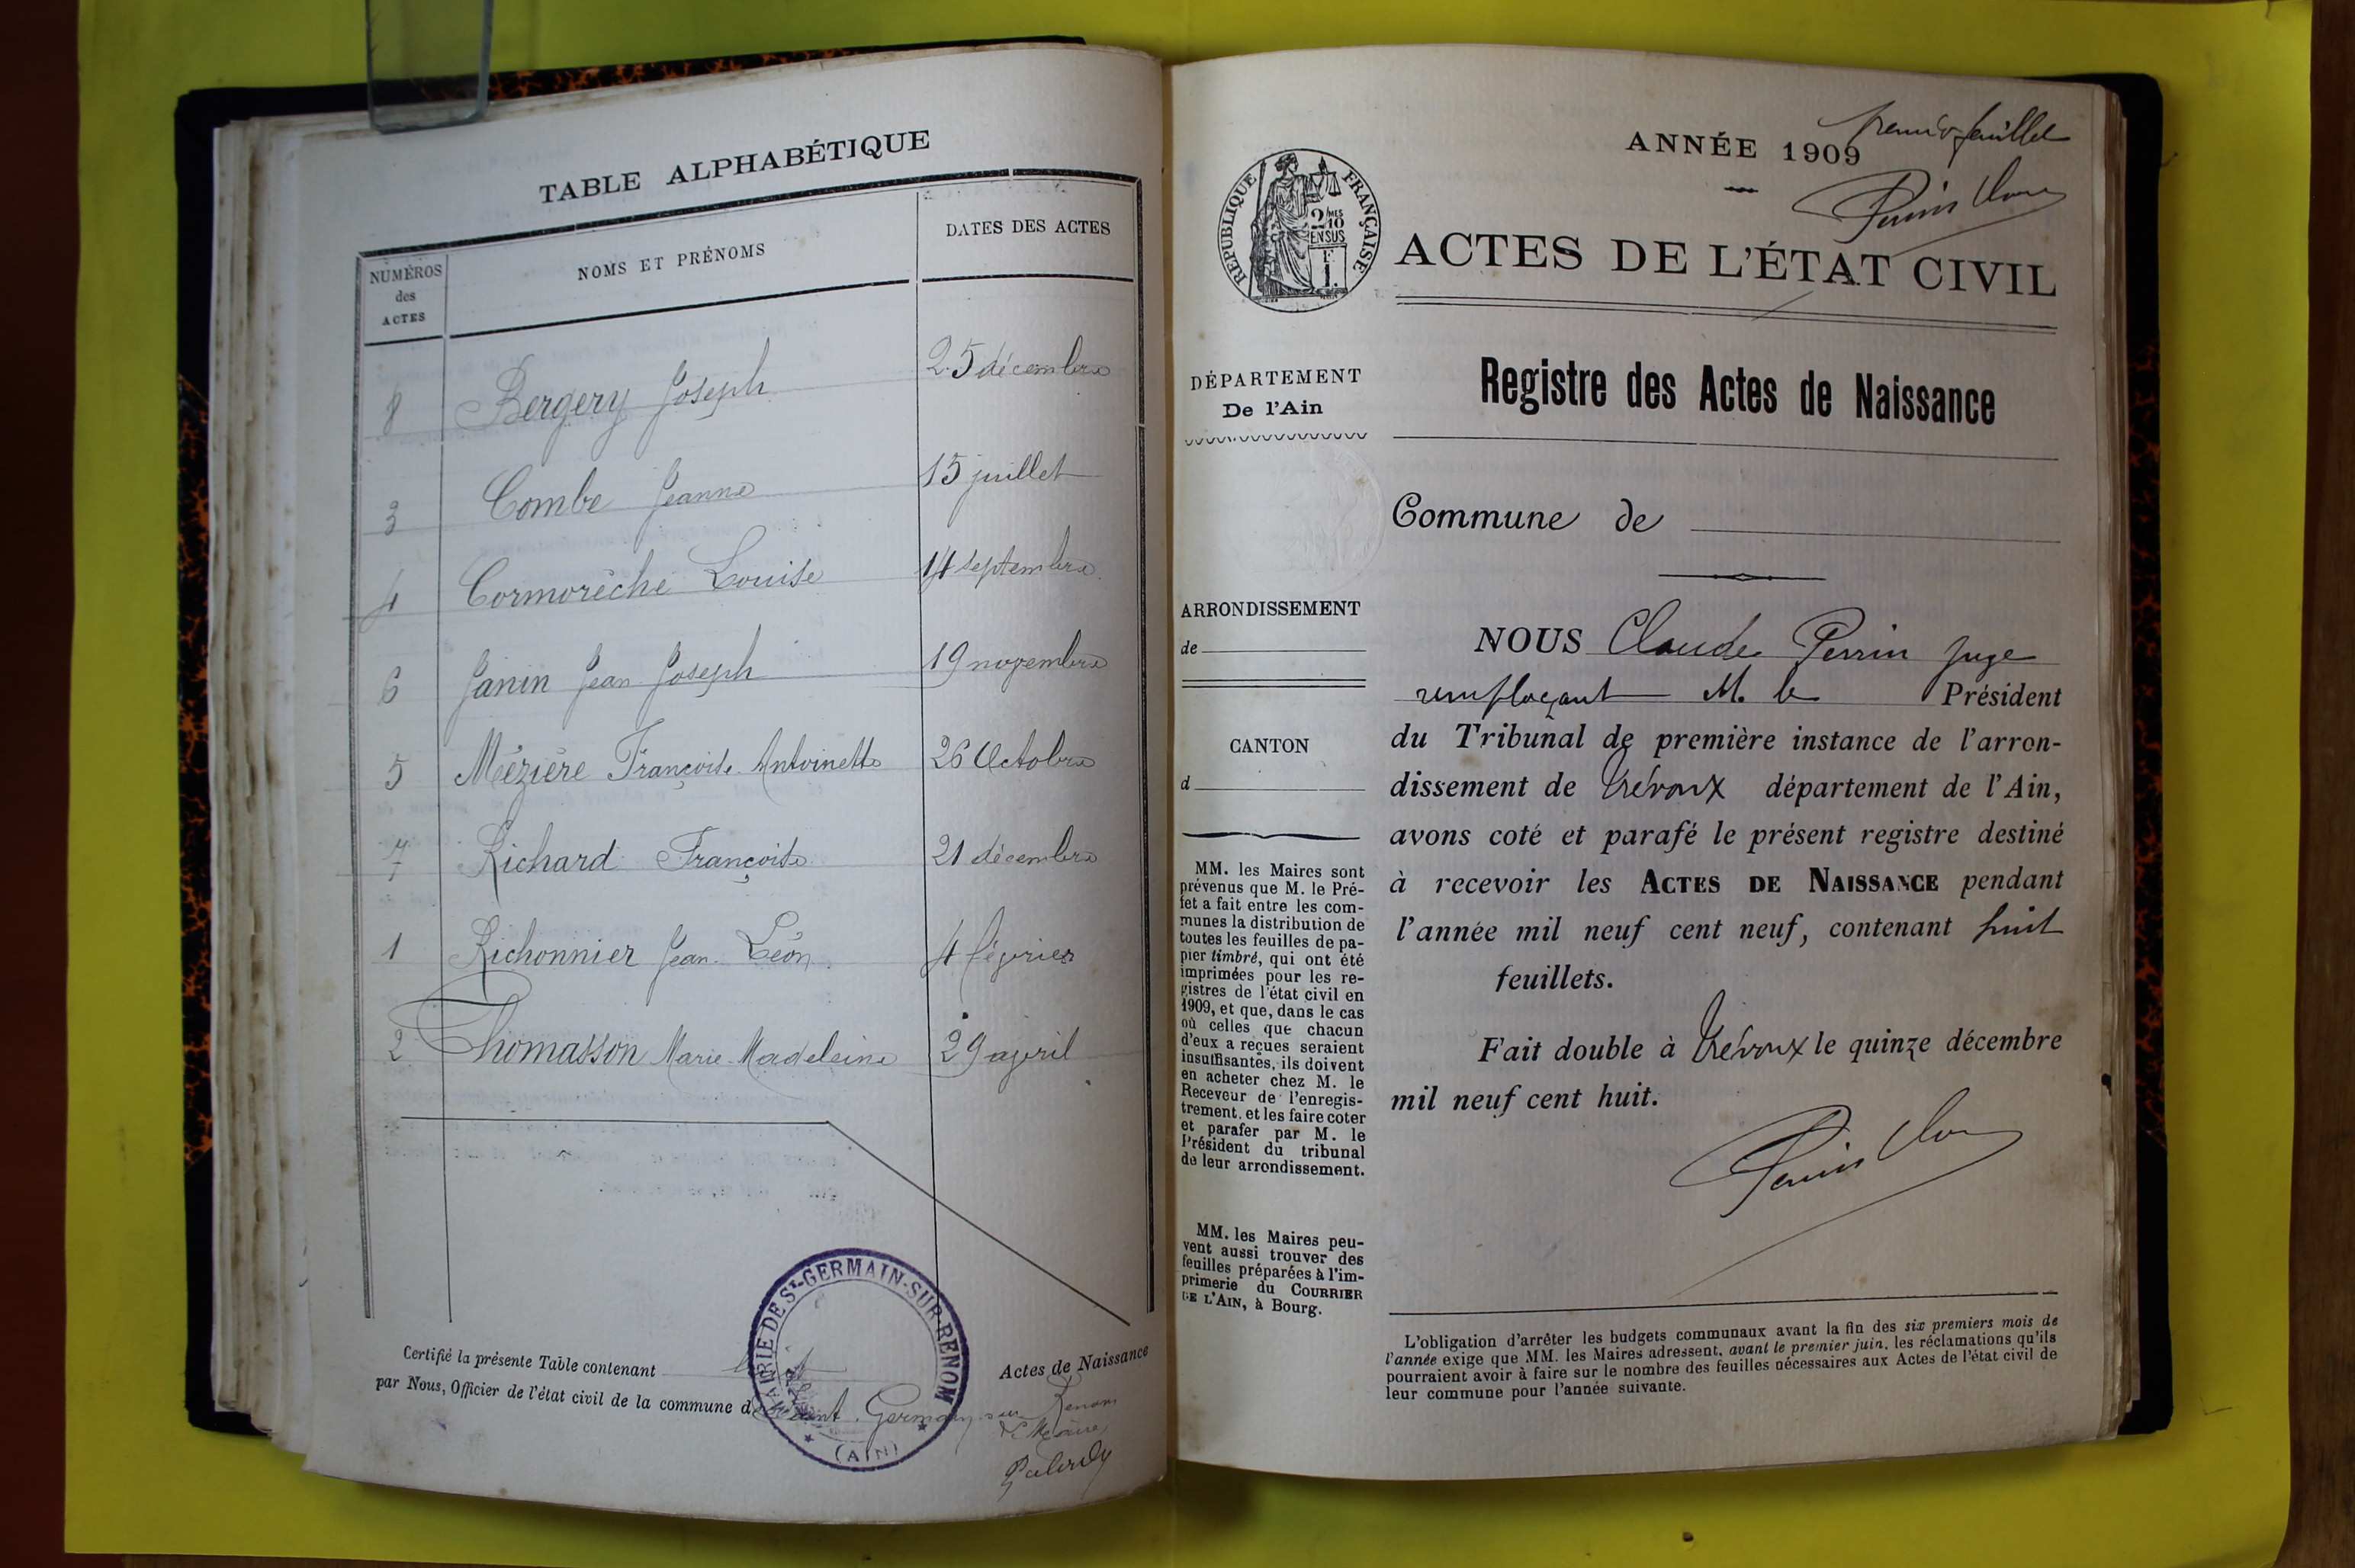 TABLE ALPHABÉTIQUE
NUMÉROS
des
ACTES
NOMS ET PRÉNOMS
DATES DES ACTES
8 Bergery Joseph 25 décembre
3 Combe Jeanne 15 juillet
4 Cormorèche Louise 14 septembre
6 Janin Jean Joseph 19 novembre
5 Mézière Françoise Antoinette 26 Octobre
7 Richard Françoise 21 décembre
1 Richonnier Jean Léon 4 février
2 Thomasson Marie Madeleine 29 avril
Certifié la présente Table contenant Actes de Naissance
par Nous, Officier de l'état civil de la commune de Saint Germain sur Renom
Le Maire
MAIRIE DE ST-GERMAIN-SUR-RENOM
(AIN)
premier feuillet
ANNÉE 1909
Perrin Clau
RÉPUBLIQUE FRANÇAISE
2/10MES
EN SUS
F
1.
ACTES DE L'ÉTAT CIVIL
DÉPARTEMENT
De l'Ain
ARRONDISSEMENT
de
CANTON
d
MM. les Maires sont
prévenus que M. le Pré-
fet a fait entre les com-
munes la distribution de
toutes les feuilles de pa-
pier timbré, qui ont été
imprimées pour les re-
gistres de l'état civil en
1909, et que, dans le cas
où celles que chacun
d'eux a reçues seraient
insuffisantes, ils doivent
en acheter chez M. le
Receveur de l'enregis-
trement, et les faire coter
et parafer par M. le
Président du tribunal
de leur arrondissement.
MM. les Maires peu-
vent aussi trouver des
feuilles préparées à l'im-
primerie du COURRIER
DE L'AIN, à Bourg.
Registre des Actes de Naissance
Commune de
NOUS Claude Perrin juge
remplaçant M. le Président
du Tribunal de première instance de l'arron-
dissement de Trévoux département de l'Ain,
avons coté et parafé le présent registre destiné
à recevoir les ACTES DE NAISSANCE pendant
l'année mil neuf cent neuf, contenant huit
feuillets.
Fait double à Trévoux le quinze décembre
mil neuf cent huit.
Perrin Clau
L'obligation d'arrêter les budgets communaux avant la fin des six premiers mois de
l'année exige que MM. les Maires adressent, avant le premier juin, les réclamations qu'ils
pourraient avoir à faire sur le nombre des feuilles nécessaires aux Actes de l'état civil de
leur commune pour l'année suivante.